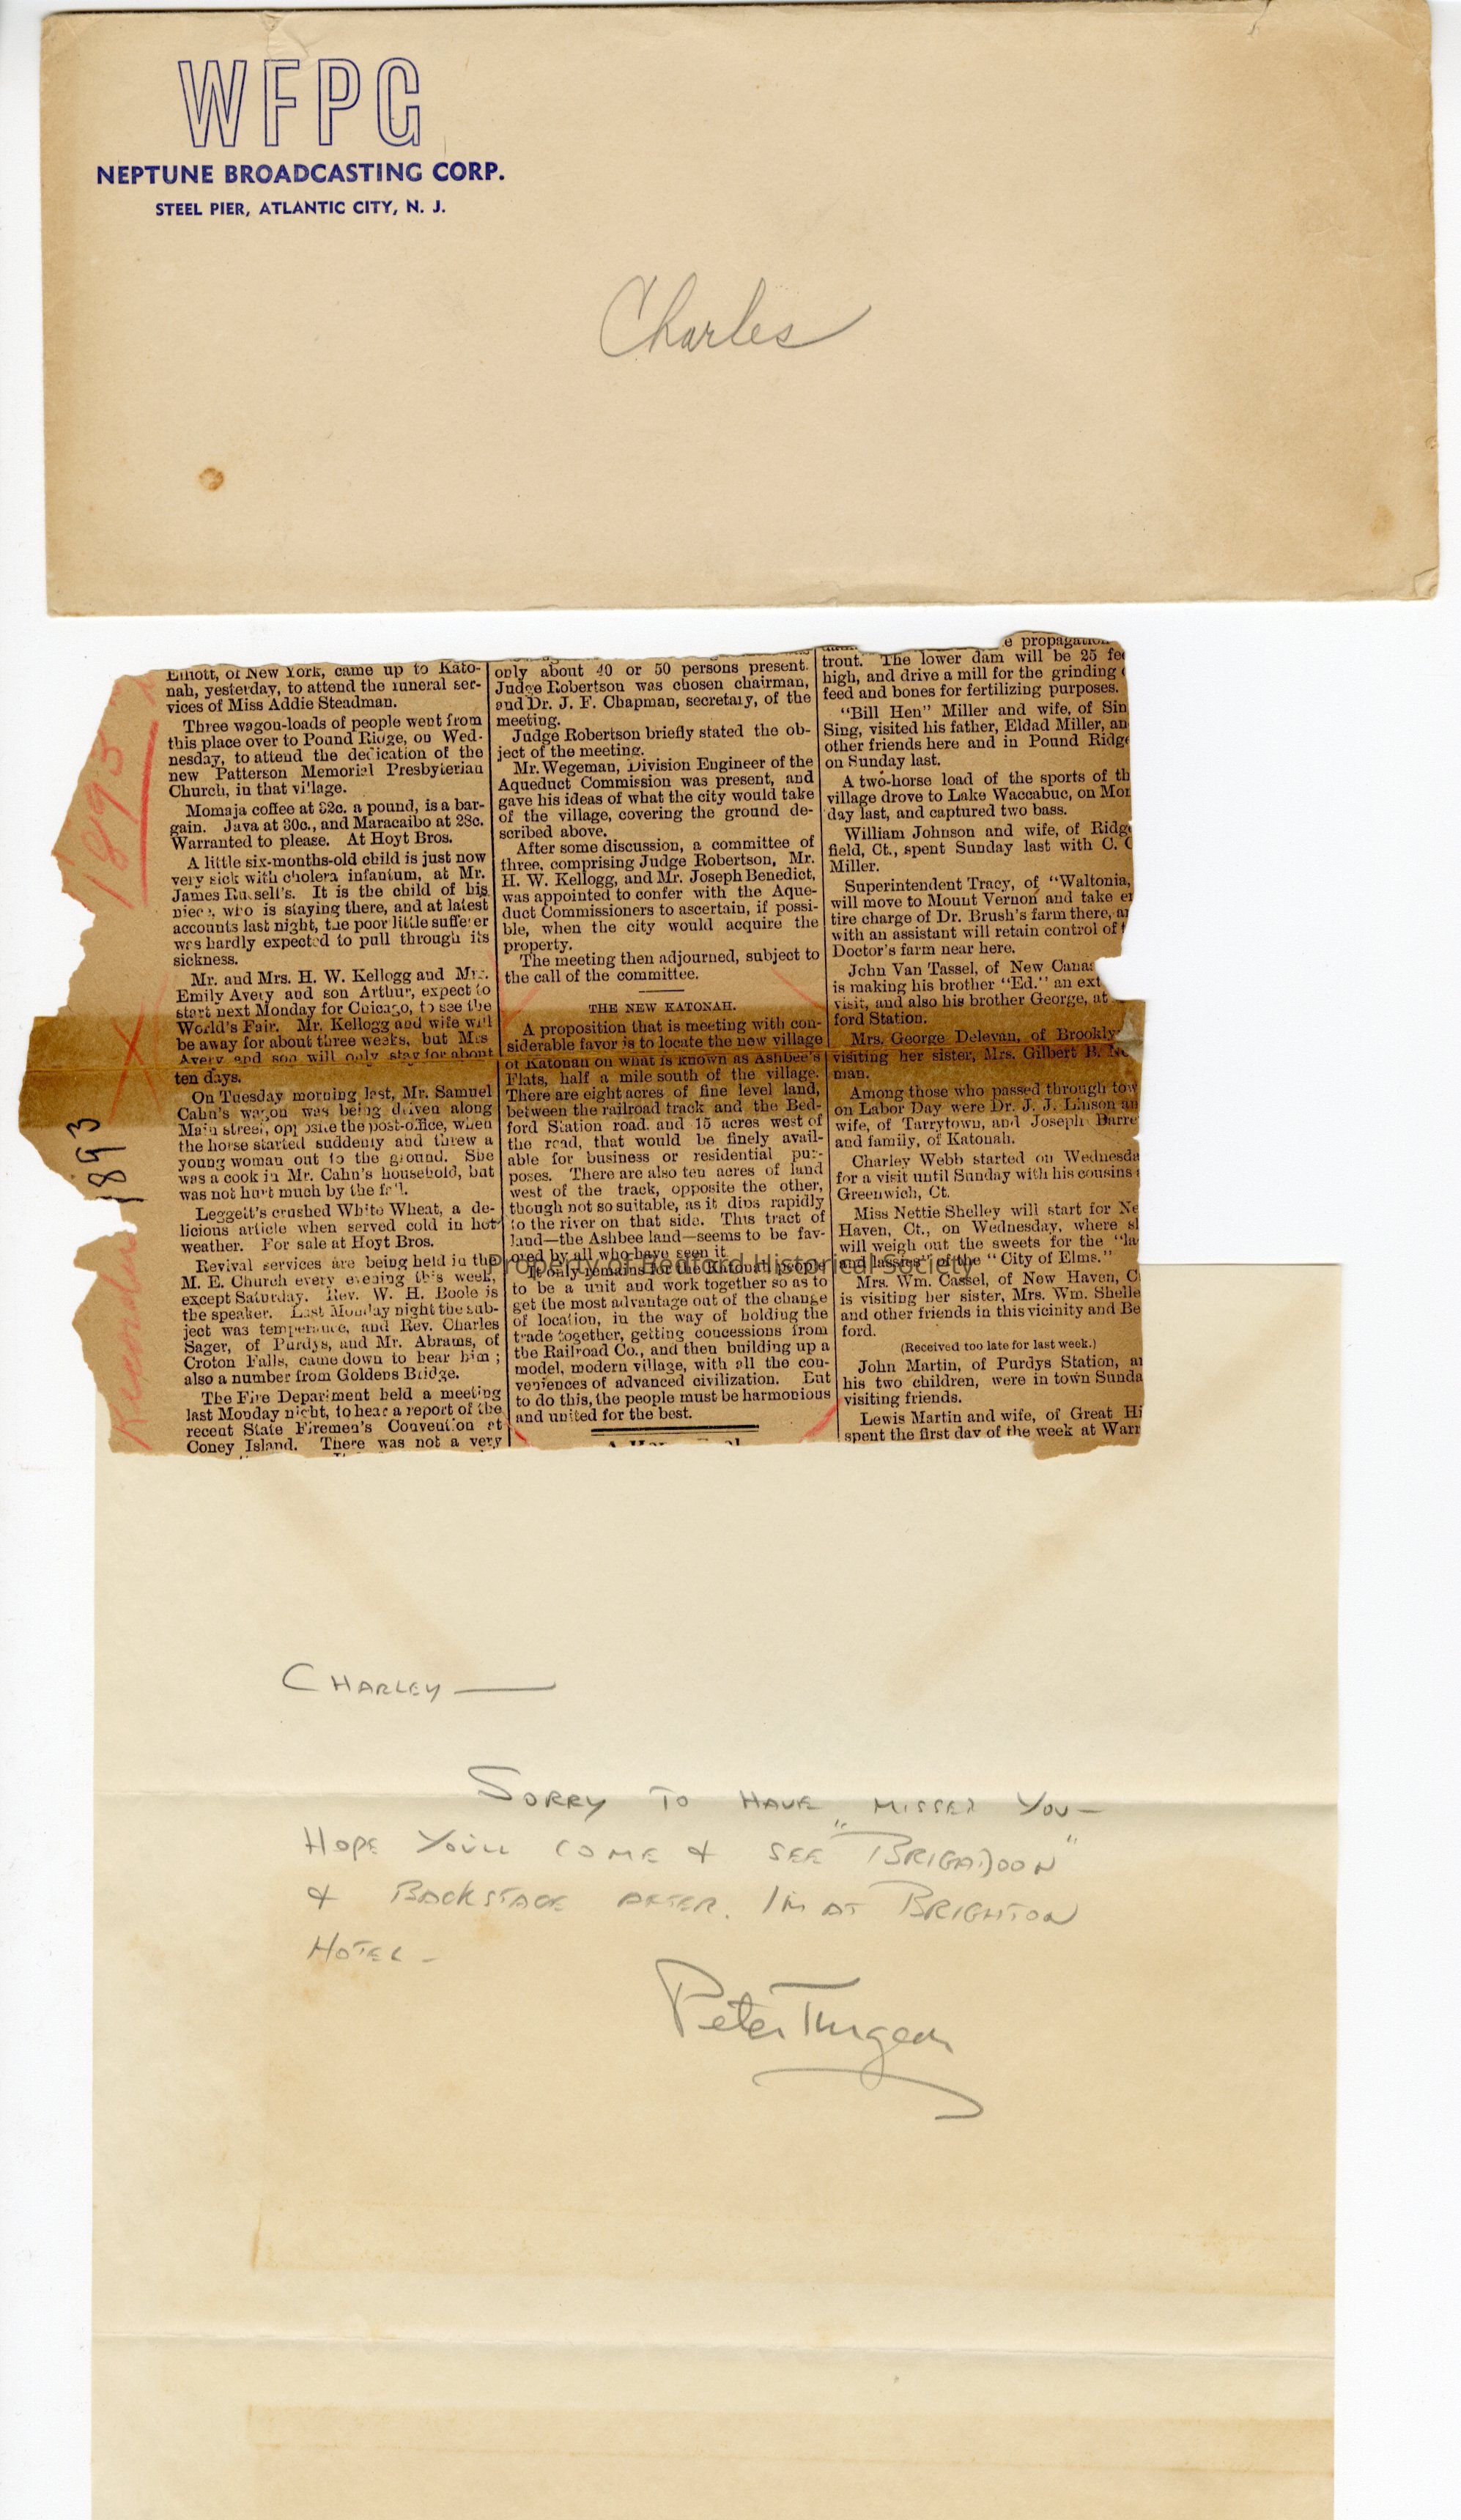 WFPG
NEPTUNE BROADCASTING CORP.
STEEL PIER, ATLANTIC CITY, N. J.
Charles
1893
1893
Elliott, of New York, came up to Kato-
nah, yesterday, to attend the funeral ser-
vices of Miss Addie Steadman.
Three wagon-loads of people went from
this place over to Pound Ridge, on Wed-
nesday, to attend the dedication of the
new Patterson Memorial Presbyterian
Church, in that village.
Momaja coffee at 32c. a pound, is a bar-
gain. Java at 30c., and Maracaibo at 28c.
Warranted to please. At Hoyt Bros.
A little six-months-old child is just now
very sick with cholera infantum, at Mr.
James Russell's. It is the child of his
niece, who is staying there, and at latest
accounts last night, the poor little sufferer
was hardly expected to pull through its
sickness.
Mr. and Mrs. H. W. Kellogg and Mrs.
Emily Avery and son Arthur, expect to
start next Monday for Chicago, to see the
World's Fair. Mr. Kellogg and wife will
be away for about three weeks, but Mrs
Avery and son will only stay for about
ten days.
On Tuesday morning last, Mr. Samuel
Cahn's wagon was being driven along
Main street, opposite the post-office, when
the horse started suddenly and threw a
young woman out to the ground. She
was a cook in Mr. Cahn's household, but
was not hurt much by the fall.
Leggett's crushed White Wheat, a de-
licious article when served cold in hot
weather. For sale at Hoyt Bros.
Revival services are being held in the
M. E. Church every evening this week,
except Saturday. Rev. W. H. Boole is
the speaker. Last Monday night the sub-
ject was temperance, and Rev. Charles
Sager, of Purdys, and Mr. Abrams, of
Croton Falls, came down to hear him;
also a number from Goldens Bridge.
The Fire Department held a meeting
last Monday night, to hear a report of the
recent State Firemen's Convention at
Coney Island. There was not a very
only about 40 or 50 persons present.
Judge Robertson was chosen chairman,
and Dr. J. F. Chapman, secretary, of the
meeting.
Judge Robertson briefly stated the ob-
ject of the meeting.
Mr. Wegeman, Division Engineer of the
Aqueduct Commission was present, and
gave his ideas of what the city would take
of the village, covering the ground de-
scribed above.
After some discussion, a committee of
three, comprising Judge Robertson, Mr.
H. W. Kellogg, and Mr. Joseph Benedict,
was appointed to confer with the Aque-
duct Commissioners to ascertain, if possi-
ble, when the city would acquire the
property.
The meeting then adjourned, subject to
the call of the committee.
THE NEW KATONAH.
A proposition that is meeting with con-
siderable favor is to locate the new village
of Katonah on what is known as Ashbee's
Flats, half a mile south of the village.
There are eight acres of fine level land,
between the railroad track and the Bed-
ford Station road, and 15 acres west of
the road, that would be finely avail-
able for business or residential pur-
poses. There are also ten acres of land
west of the track, opposite the other,
though not so suitable, as it dips rapidly
to the river on that side. This tract of
land—the Ashbee land—seems to be fav-
ored by all who have seen it.
It only remains for the Katonah people
to be a unit and work together so as to
get the most advantage out of the change
of location, in the way of holding the
trade together, getting concessions from
the Railroad Co., and then building up a
model, modern village, with all the con-
veniences of advanced civilization. But
to do this, the people must be harmonious
and united for the best.
e propagation
trout. The lower dam will be 25 fee
high, and drive a mill for the grinding
feed and bones for fertilizing purposes.
"Bill Hen" Miller and wife, of Sin
Sing, visited his father, Eldad Miller, an
other friends here and in Pound Ridge
on Sunday last.
A two-horse load of the sports of th
village drove to Lake Waccabuc, on Mon
day last, and captured two bass.
William Johnson and wife, of Ridge
field, Ct., spent Sunday last with C. C
Miller.
Superintendent Tracy, of "Waltonia,
will move to Mount Vernon and take en
tire charge of Dr. Brush's farm there, an
with an assistant will retain control of t
Doctor's farm near here.
John Van Tassel, of New Canaa
is making his brother "Ed." an ext
visit, and also his brother George, at
ford Station.
Mrs. George Delevan, of Brookly
visiting her sister, Mrs. Gilbert B. Ne
man.
Among those who passed through tow
on Labor Day were Dr. J. J. Linson an
wife, of Tarrytown, and Joseph Barre
and family, of Katonah.
Charley Webb started on Wednesda
for a visit until Sunday with his cousins
Greenwich, Ct.
Miss Nettie Shelley will start for Ne
Haven, Ct., on Wednesday, where sh
will weigh out the sweets for the "la
and lassies" of the "City of Elms."
Mrs. Wm. Cassel, of New Haven, C
is visiting her sister, Mrs. Wm. Shelle
and other friends in this vicinity and Be
ford.
(Received too late for last week.)
John Martin, of Purdys Station, an
his two children, were in town Sunda
visiting friends.
Lewis Martin and wife, of Great Hi
spent the first day of the week at Warr
Property of Bedford Historical Society
CHARLEY —
SORRY TO HAVE MISSED YOU—
HOPE YOU'LL COME & SEE "BRIGADOON"
& BACKSTAGE AFTER. I'M AT BRIGHTON
HOTEL —
Peter Turgeon